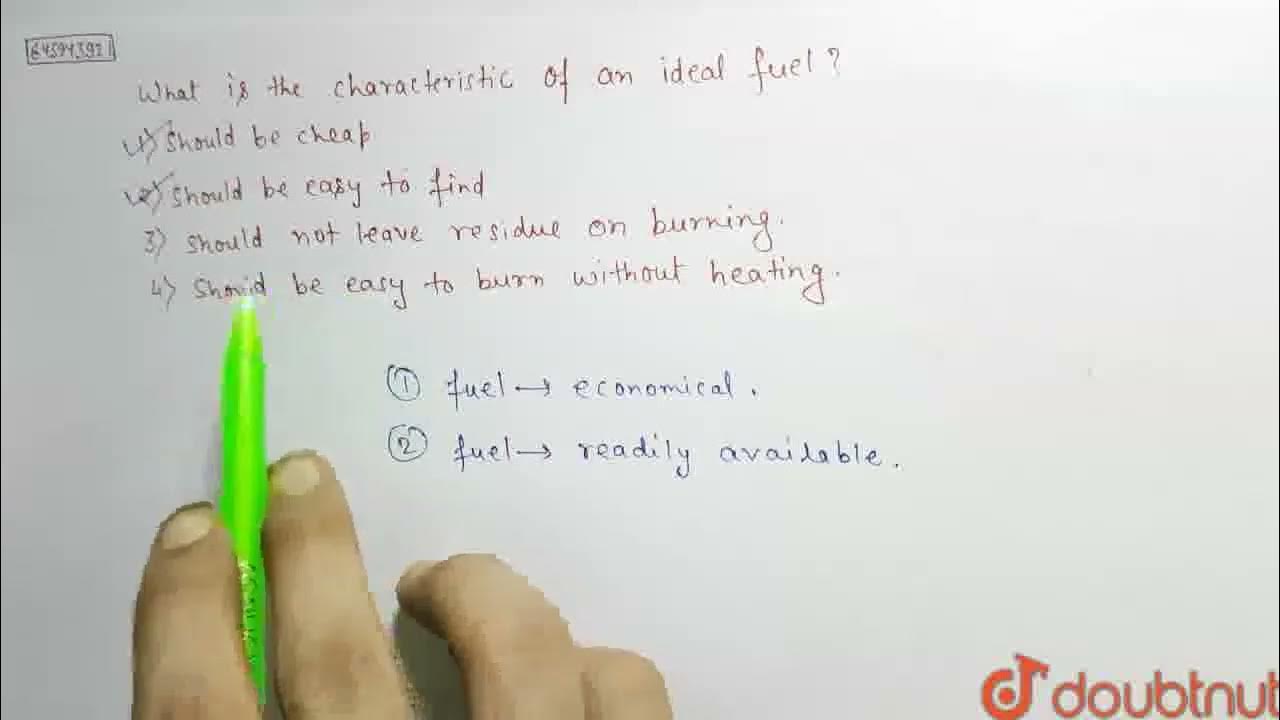 64594392
What is the characteristic of an ideal fuel?
1) Should be cheap
2) Should be easy to find
3) Should not leave residue on burning.
4) Should be easy to burn without heating.
① fuel → economical.
② fuel → readily available.
doubtnut